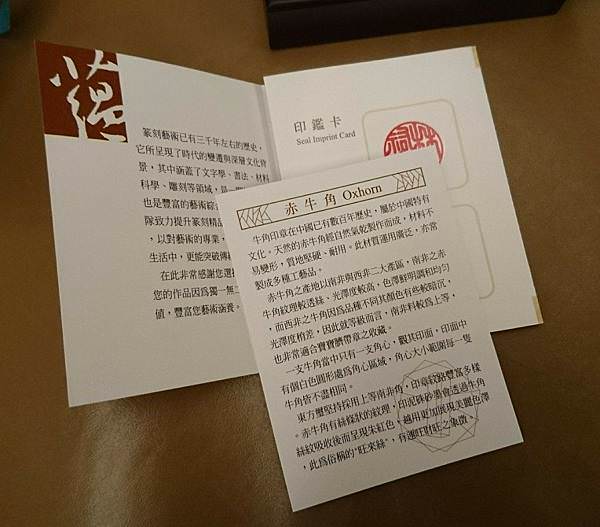 篆刻藝術已有三千年左右的歷史，
它所呈現了時代的變遷與深層文化背
景，其中涵蓋了文字學、書法、材料
科學、雕刻等領域，是一
也是豐富的藝術綜合
隊致力提升篆刻精品
，以對藝術的專業，
生活中，更能突破傳統
在此非常感謝您選擇
您的作品因為獨一無二
值，豐富您藝術涵養。
印鑑卡
Seal Imprint Card
赤牛角 Oxhorn
牛角印章在中國已有數百年歷史，屬於中國特有
文化。天然的赤牛角經自然氣乾製作而成，材料不
易變形，質地堅硬、耐用。此材質運用廣泛，亦常
製成多種工藝品。
赤牛角之產地以南非與西非二大產區，南非之赤
牛角紋理較透絲、光澤度較高，色澤鮮明調和均勻
，而西非之牛角因為品種不同其顏色有些較暗沉，
光澤度稍差，因此就等級而言，南非料較為上等，
也非常適合寶寶臍帶章之收藏。
一支牛角當中只有一支角心，觀其印面，印面中
有個白色圓形處為角心區域，角心大小範圍每一隻
牛角皆不盡相同。
東方璽堅持採用上等南非角，印章紋路豐富多樣
。赤牛角有絲條狀的紋理，印泥硃砂墨會透過牛角
絲紋吸收後而呈現朱紅色，越用更加展現美麗色澤
，此為俗稱的"旺來絲"，有運旺財旺之象徵。